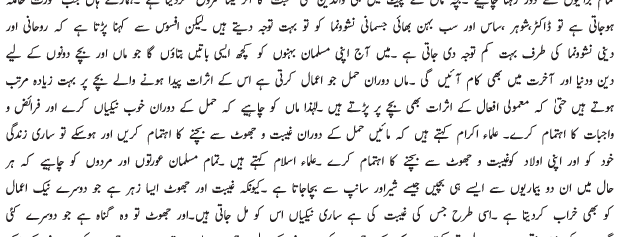 ہوجاتی ہے تو ڈاکٹر،شوہر ،ساس اور سب بہن بھائی جسمانی نشوونما کو تو بہت توجہ دیتے ہیں۔لیکن افسوس سے کہنا پڑتا ہے کہ روحانی اور
دینی نشوونما کی طرف بہت کم توجہ دی جاتی ہے ۔میں آج اپنی مسلمان بہنوں کو کچھ ایسی باتیں بتاؤں گا جو ماں اور بچے دونوں کے لیے
دین ودنیا اور آخرت میں بھی کام آئیں گی ۔ماں دوران حمل جو اعمال کرتی ہے اس کے اثرات پیدا ہونے والے بچے پر بہت زیادہ مرتب
ہوتے ہیں حتیٰ کہ معمولی افعال کے اثرات بھی بچے پر پڑتے ہیں ۔لہٰذا ماں کو چاہیے کہ حمل کے دوران خوب نیکیاں کرے اور فرائض و
واجبات کا اہتمام کرے۔ علماء اکرام کہتے ہیں کہ مائیں حمل کے دوران غیبت و جھوٹ سے بچنے کا اہتمام کریں اور ہوسکے تو ساری زندگی
خود کو اور اپنی اولاد کوغیبت و جھوٹ سے بچنے کا اہتمام کرے ۔علماء اسلام کہتے ہیں ۔تمام مسلمان عورتوں اور مردوں کو چاہیے کہ ہر
حال میں ان دو بیماریوں سے ایسے ہی بچیں جیسے شیراور سانپ سے بچاجاتا ہے ۔کیونکہ غیبت اور جھوٹ ایسا زہر ہے جو دوسرے نیک اعمال
کو بھی خراب کردیتا ہے ۔اسی طرح جس کی غیبت کی ہے ساری نیکیاں اس کو مل جاتی ہیں۔اور جھوٹ تو وہ گناہ ہے جو دوسرے کئی